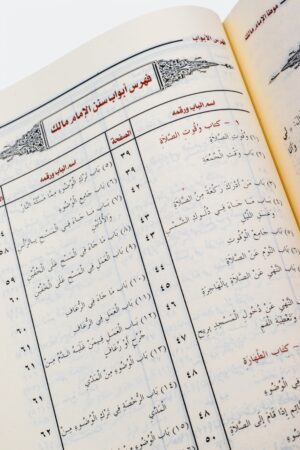 موطأ الإمام مالك
فهرس الأبواب
فهرس أبواب سنن الإمام مالك
اسم الباب ورقمه
الصفحة
كتاب وقوت الصلاة
(١) وقوت الصلاة ٣٩
(٢) باب وقت الجمعة
(٣) باب من أدرك ركعة من الصلاة ٤٢
(٤) باب ما جاء في دلوك الشمس
وغسق الليل ٤٣
(٥) باب جامع الوقوت ٤٣
(٦) باب النوم عن الصلاة ٤٤
(٧) باب النهي عن الصلاة بالهاجرة ٤٥
باب النهي عن دخول المسجد بريح ٤٦
وتغطية الفم ٤٧
كتاب الطهارة
العمل في الوضوء ٤٨
إذا قام إلى ٥٠
اسم الباب ورقمه
(٥) باب ترك الوضوء مما مسته النار
(٦) باب جامع الوضوء
باب ما جاء في المسح بالرأس
والأذنين
(٨) باب ما جاء في المسح على الخفين
(٩) باب العمل في المسح على الخفين
(١٠) باب ما جاء في الرعاف
(١١) باب العمل في الرعاف
(١٢) باب العمل فيمن غلبه الدم من
جرح أو رعاف
(١٣) باب الوضوء من المذي
(١٤) باب الرخصة في ترك الوضوء من
المذي
(١٥)
٥٨
٥٩
٦٠
٦٠
٦١
٦١
٦٢